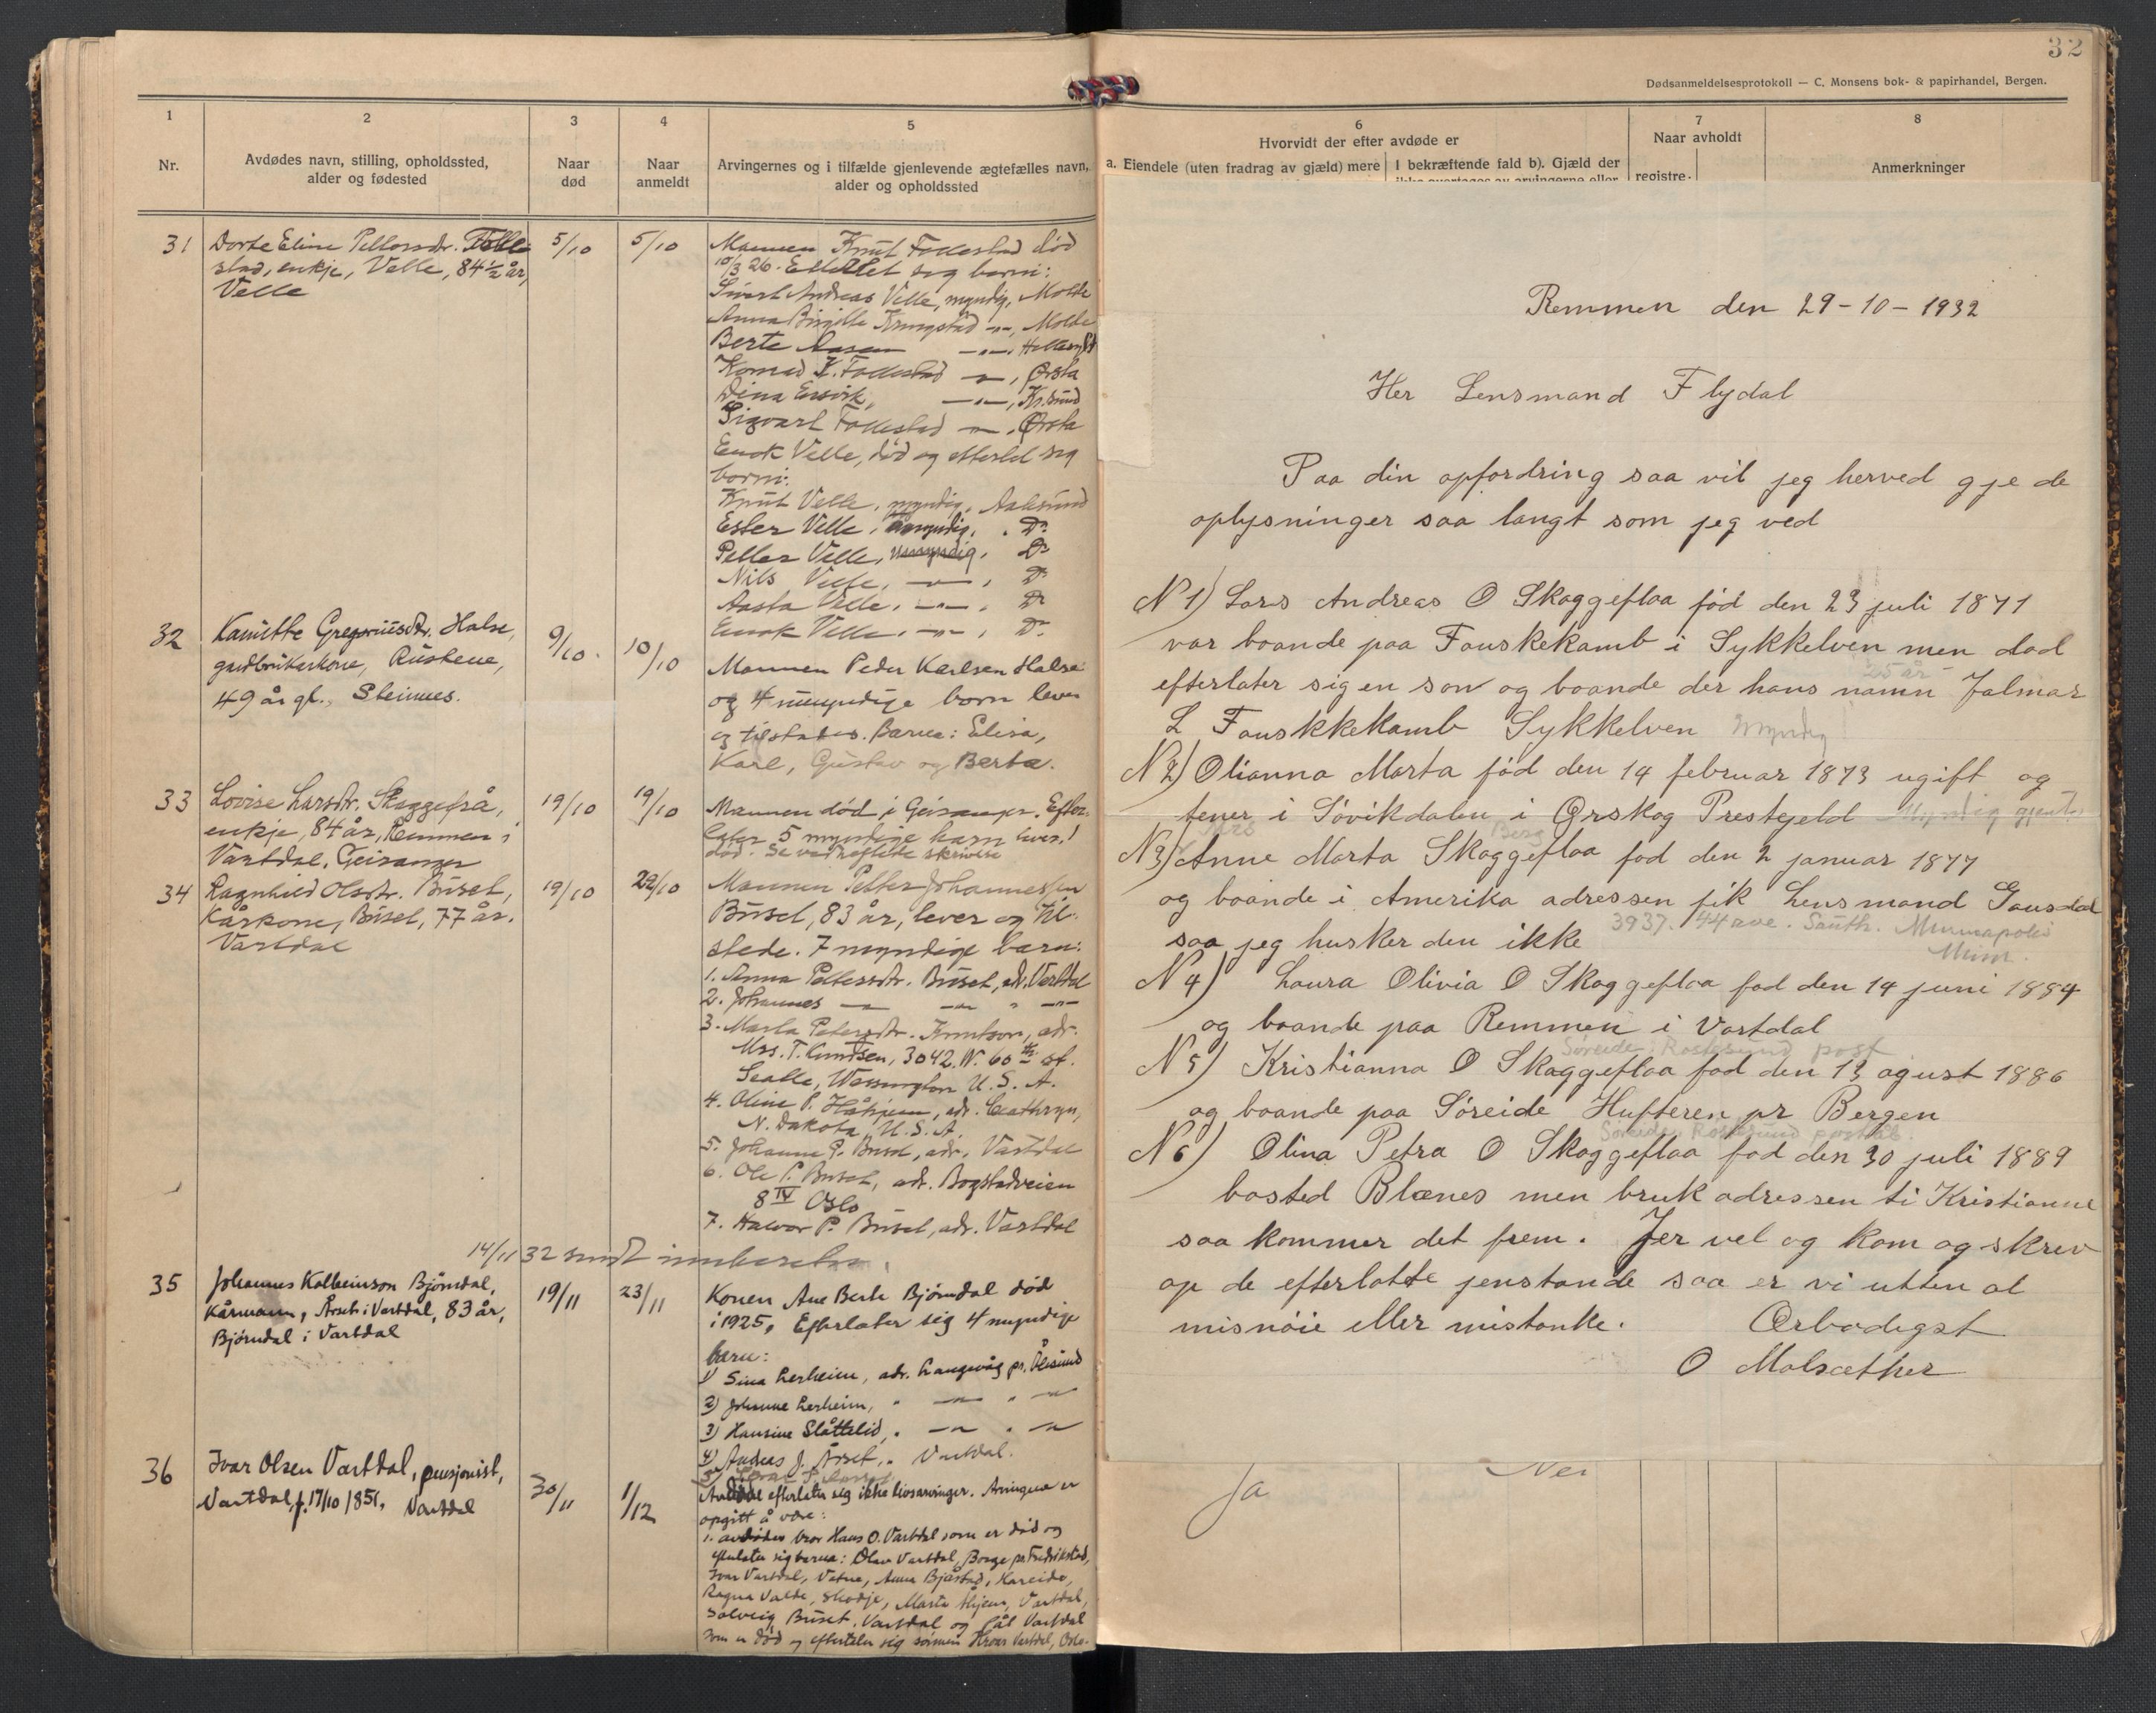 32
Dødsanmeldelsesprotokoll — C. Monsens bok- & papirhandel, Bergen.
1
Nr.
2
Avdødes navn, stilling, opholdssted,
alder og fødested
3
Naar
død
4
Naar
anmeldt
5
Arvingernes og i tilfælde gjenlevende ægtefælles navn,
alder og opholdssted
6
Hvorvidt der efter avdøde er
a. Eiendele (uten fradrag av gjæld) mere
I bekræftende fald b). Gjæld der
ikke overtages av arvingerne eller
7
Naar avholdt
registre-
8
Anmerkninger
31
Dorte Eline Pettersdr. Folle-
stad, enkje, Velle, 84½ år,
Velle
5/10
5/10
Mannen Knut Follestad død
10/3 26. Etterlet seg born:
Sivert Andreas Velle, myndig, Molde
Anna Birgitte Kringstad —"—, Molde
Berte Aasen —"—, Hellesylt
Konrad K. Follestad —"—, Ørsta
Dina Ervik, —"—, Kr.sund
Sigvart Follestad —"—, Ørsta
Enok Velle, død og etterlet seg
born:
Knut Velle, myndig, Aalesund
Ester Velle, umyndig, Do
Petter Velle, umyndig, Do
Nils Velle, —"—, Do
Aasta Velle, —"—, Do
Enok Velle, —"—, Do
32
Kamitte Gregoriusdr. Halse,
gardbrukarkone, Rustene,
49 år gl., Steinnes.
9/10
10/10
Mannen Peder Karlsen Halse
og 4 umyndige born lever
og tilstades. Barna: Elisa,
Karl, Gustav og Berta.
33
Lovise Larsdr. Skaggeflå,
enkje, 84 år, Remmen i
Vartdal, Geiranger
19/10
19/10
Mannen død i Geiranger. Efter-
later 5 myndige barn lever. 1
død. Se vedheftete skrivere
34
Ragnhild Olsdr. Buset,
Kårkone, Buset, 77 år.
Vartdal
19/10
29/10
Mannen Petter Johannessen
Buset, 83 år, lever og til-
stede. 7 myndige barn:
1. Anna Pettersdr. Buset, ad. Vartdal
2. Johannes — —"— " —"—
3. Marta Petersdr. Knutson, adr.
Mrs. T. Knudsen, 3042. W. 60th st.
Seatle, Wassington U. S. A.
4. Oline P. Håkjem, adr. Cathryn,
N. Dakota, U. S. A.
5. Johanna P. Buset, adr. Vartdal
6. Ole P. Buset, adr. Bogstadveien
8 IV Oslo
7. Halvor P. Buset, adr. Vartdal
14/11 32 sendt innberetn.
35
Johannes Kolbeinson Bjørndal,
Kårmann, Årset i Vartdal, 83 år,
Bjørndal i Vartdal
19/11
23/11
Konen Ane Berte Bjørndal død
i 1925. Efterlater sig 4 myndige
barn:
1) Sina Lerheim, adr. Langevåg pr. Ålesund
2) Johanne Lerheim, " —"— " —"—
3) Hansine Slåttelid, " —"— " —"—
4) Andreas J. Årset, " Vartdal.
36
Ivar Olsen Vartdal, pensjonist,
Vartdal, f. 17/10 1851, Vartdal
30/11
1/12
Avdøde efterlater sig ikke livsarvinger. Arvingene er
opgitt å være:
1. avdødes bror Hans O. Vartdal som er død og
efterlater sig barna: Olav Vartdal, Borge pr. Fredrikstad,
Ivar Vartdal, Vatne, Anna Bjåstad, Hareide,
Ragna Valde, Skodje, Marte Hjem, Vartdal,
Solveig Buset, Vartdal og Pål Vartdal
som er død og efterlater sig sønnen Hroar Vartdal, Oslo.
Remmen den 29-10-1932
Her Lensmand Flydal
Paa din opfordring saa vil jeg herved gje de
oplysninger saa langt som jeg ved
N 1) Lars Andreas O Skaggeflaa fød den 23 juli 1871
var boande paa Fauskekamb i Sykkelven men død
25 år
efterlater sig en søn og boande der hans namn Jalmar
L Fauskkekamb Sykkelven myndig
N 2) Olianna Marta fød den 14 februar 1873 ugift og
tener i Søvikdalen i Ørskog Prestejeld Myndig gjente
Mrs Berg
N 3) Anne Marta Skaggeflaa fød den 2 januar 1877
og boande i Amerika adressen fik Lensmand Gausdal
saa jeg husker den ikke 3937. 44 ave. South. Minneapolis
Minn.
N 4) Laura Olivia O Skaggeflaa fød den 14 juni 1884
og boande paa Remmen i Vartdal
Søreide, Rostesund post
N 5) Kristianna O Skaggeflaa fød den 13 agust 1886
og boande paa Søreide Hufteren pr Bergen
Søreide, Rostesund postst.
N 6) Olina Petra O Skaggeflaa fød den 30 juli 1889
bosted Blænes men bruk adressen ti Kristianne
saa kommer det frem. Jer vel og kom og skrev
op de efterlatte jenstande saa er vi utten al
misnøie eller mistanke. Ærbødigst
O Molsæther
Ja
Nei